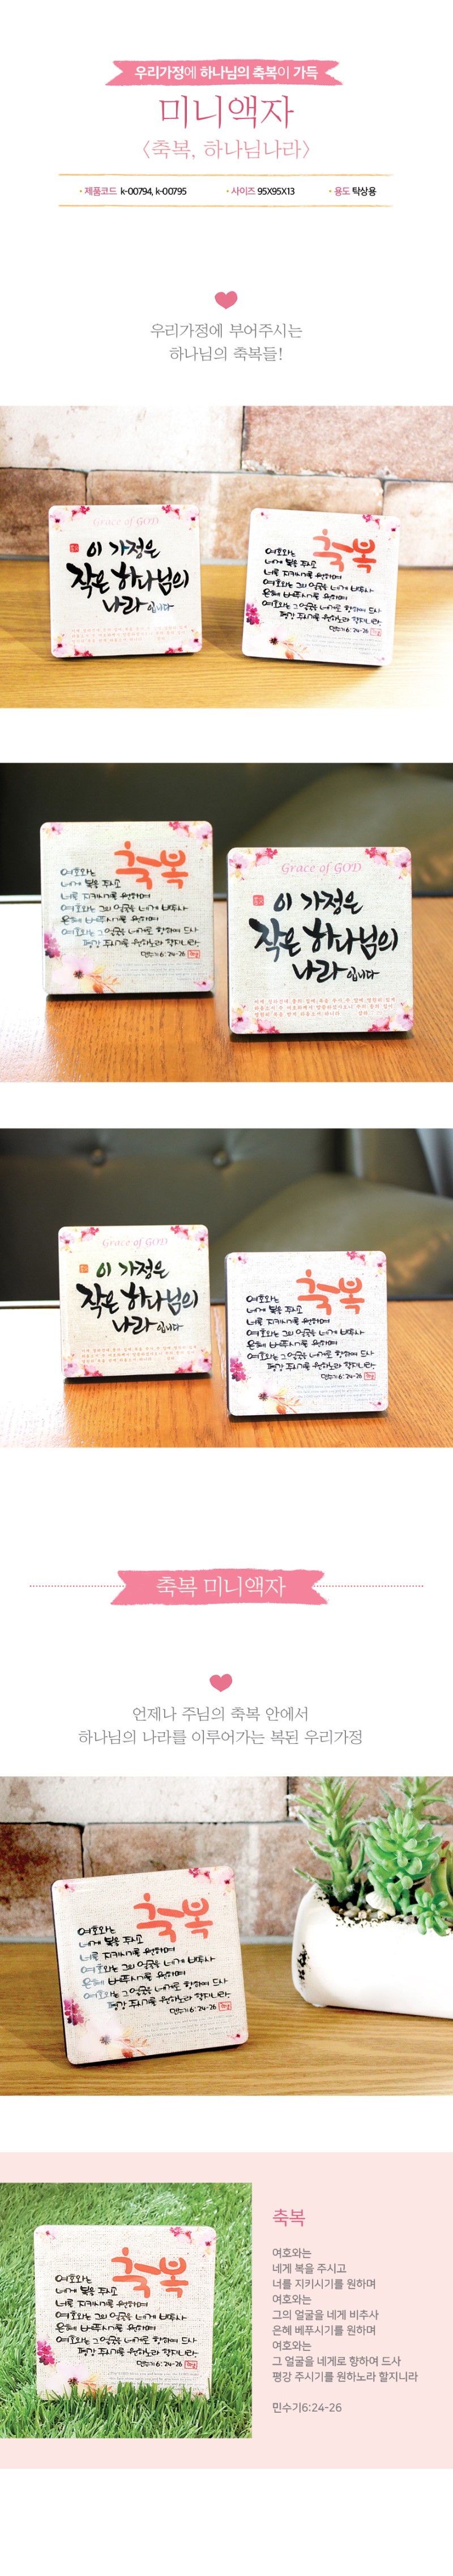 우리가정에 하나님의 축복이 가득
미니액자
〈축복, 하나님나라〉
• 제품코드 k-00794, k-00795 • 사이즈 95X95X13 • 용도 탁상용
우리가정에 부어주시는
하나님의 축복들!
Grace of GOD
이 가정은
작은 하나님의
나라입니다
축복
여호와는
네게 복을 주시고
너를 지키시기를 원하며
여호와는 그의 얼굴을 네게 비추사
은혜 베푸시기를 원하며
여호와는 그 얼굴을 네게로 향하여 드사
평강 주시기를 원하노라 할지니라
민수기6:24-26
축복
여호와는
네게 복을 주시고
너를 지키시기를 원하며
여호와는 그의 얼굴을 네게 비추사
은혜 베푸시기를 원하며
여호와는 그 얼굴을 네게로 향하여 드사
평강 주시기를 원하노라 할지니라
민수기6:24-26
Grace of GOD
이 가정은
작은 하나님의
나라입니다
Grace of GOD
이 가정은
작은 하나님의
나라입니다
축복
여호와는
네게 복을 주시고
너를 지키시기를 원하며
여호와는 그의 얼굴을 네게 비추사
은혜 베푸시기를 원하며
여호와는 그 얼굴을 네게로 향하여 드사
평강 주시기를 원하노라 할지니라
민수기6:24-26
축복 미니액자
언제나 주님의 축복 안에서
하나님의 나라를 이루어가는 복된 우리가정
축복
여호와는
네게 복을 주시고
너를 지키시기를 원하며
여호와는 그의 얼굴을 네게 비추사
은혜 베푸시기를 원하며
여호와는 그 얼굴을 네게로 향하여 드사
평강 주시기를 원하노라 할지니라
민수기6:24-26
축복
여호와는
네게 복을 주시고
너를 지키시기를 원하며
여호와는 그의 얼굴을 네게 비추사
은혜 베푸시기를 원하며
여호와는 그 얼굴을 네게로 향하여 드사
평강 주시기를 원하노라 할지니라
민수기6:24-26
축복
여호와는
네게 복을 주시고
너를 지키시기를 원하며
여호와는
그의 얼굴을 네게 비추사
은혜 베푸시기를 원하며
여호와는
그 얼굴을 네게로 향하여 드사
평강 주시기를 원하노라 할지니라
민수기6:24-26